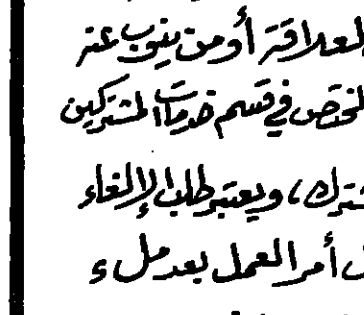 العلاقة أو من ينوب عنه
المختص في قسم خدمات المشتركين
ويعتبر طلب الإلغاء
أمر العمل بعد ملء